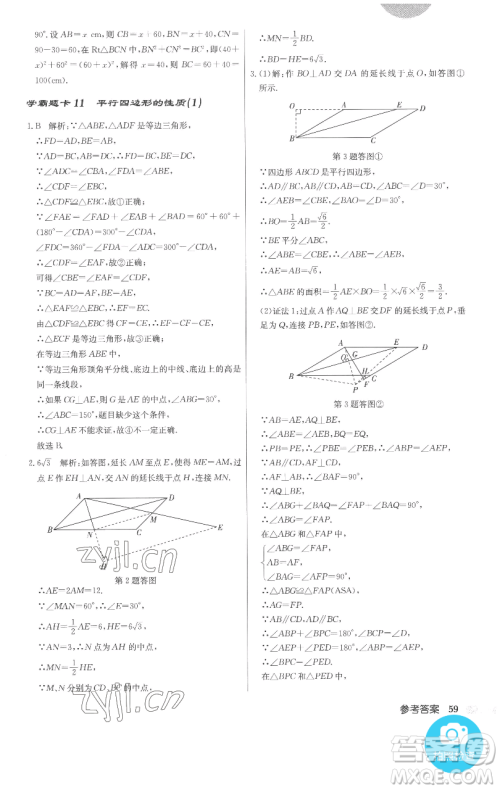 90°. 设 AC=x cm, 则 BC=(x+40)cm, DC=
90-30=60. 在 Rt△BCN 中, BN²=BC², 即(40+
x)²=x²+60², 解得 x=25, 所以 AC+CD=60+40=
100(cm).
学霸题卡 11 平行四边形的性质(1)
1. B 解析: ∵△ABE, △ADF 是等边三角形,
∴FD=AD, BE=AB.
∵AD=BC, AB=DC,
∴FD=BC, BE=DC.
∴△CDF≌△EBC, 故①正确;
∵∠FAE=∠FAD+∠EAB+∠BAD=60°+60°+
(180°-∠CDA)=300°-∠CDA,
∠FDC=360°-∠FDA-∠CDA=300°-∠CDA,
∴∠CDF=∠EAF, 故②正确;
∴△EAF≌△EBC, ∴EF=EC.
由△CDF≌△EBC, 可得 CF=CE,
∴△ECF 是等边三角形, 故③正确;
在等边三角形 ABE 中,
∵等边三角形顶角平分线、底边上的中线、高是同
一条线段,
∴如果 CG⊥AE, 则 G 是 AE 的中点, ∠ABG=30°,
∠ABC=150°, 题目缺少这个条件,
∴CG⊥AE 不能求证, 故④错误.
故选 B.
2. 6√3 解析: 如答图, 延长 AM 至点 E, 使 ME=AM, 过
点 E 作 EH⊥AN, 交 AN 的延长线于点 H, 连接 MN.
A D M E B N C H
第 2 题答图
∴AE=2AM=12.
∵∠MAN=60°, ∴∠AEH=30°.
∴AH=1/2AE=6.
∵AN=3, ∴N 为 AH 的中点.
∵M, N 分别为 CD, BC 的中点,
∴MN=1/2BD, MN=1/2HE.
∴BD=HE=6√3.
3. (1)解: 作 BO⊥AD 交 DA 的延长线于点 O, 如答图①
所示.
O A E D B C
第 3 题答图①
∵四边形 ABCD 是平行四边形,
∴AD∥BC, AB∥CD, AB=CD=√6.
∴∠AEB=∠CBE, ∠BAO=∠D=30°.
∴BO=1/2AB=√6/2.
∵BE 平分∠ABC, ∴∠ABE=∠CBE=∠AEB.
∴AE=AB=√6.
∴△ABE 的面积=1/2AE×BO=1/2×√6×√6/2=3/2.
(2)证法 1: 过点 A 作 AQ⊥BE 交 DF 的延长线于点 P, 垂
足为 Q, 连接 PB, PE, 如答图②.
A E D G H Q F B C P
第 3 题答图②
∵AB=AE, AQ⊥BE,
∴∠ABE=∠AEB, BQ=EQ.
∴PB=PE.
∴∠PBE=∠PEB.
∴∠ABP=∠AEP.
∵AB∥CD, AF⊥CD,
∴AF⊥AB.
∴∠BAF=90°.
∵AQ⊥BE,
∴∠ABG=∠FAP.
在△ABG 和△FAP 中,
∠ABG=∠FAP,
AB=AF,
∠BAG=∠AFP=90°,
∴△ABG≌△FAP(ASA).
∴AG=FP.
∵AB∥CD, AD∥BC,
∴∠ABP+∠BPC=180°, ∠BCP=∠D.
∵∠AEP+∠PED=180°,
∴∠BPC=∠PED.
在△BPC 和△PED 中,
参考答案 59
zyjl.cn
zyjl.cn
答案圈